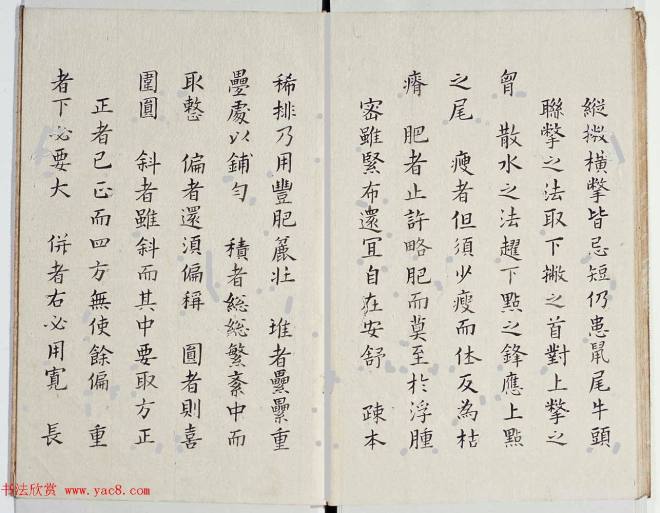 縱撇橫撆皆忌短仍患鼠尾牛頭
聯撆之法取下撇之首對上撆之
胷 散水之法趯下點之鋒應上點
之尾 瘦者但須少瘦而体反為枯
瘠 肥者止許略肥而莫至於浮腫
密雖緊布還宜自在安舒 踈本
稀排乃用豐肥麁壯 堆者纍纍重
疊處以鋪勻 積者総総繁紊中而
取整 偏者還須偏稱 圓者則喜
圍圓 斜者雖斜而其中要取方正
正者已正而四方無使餘偏 重
者下必要大 併者右必用寬 長
书法欣赏 www.yac8.com